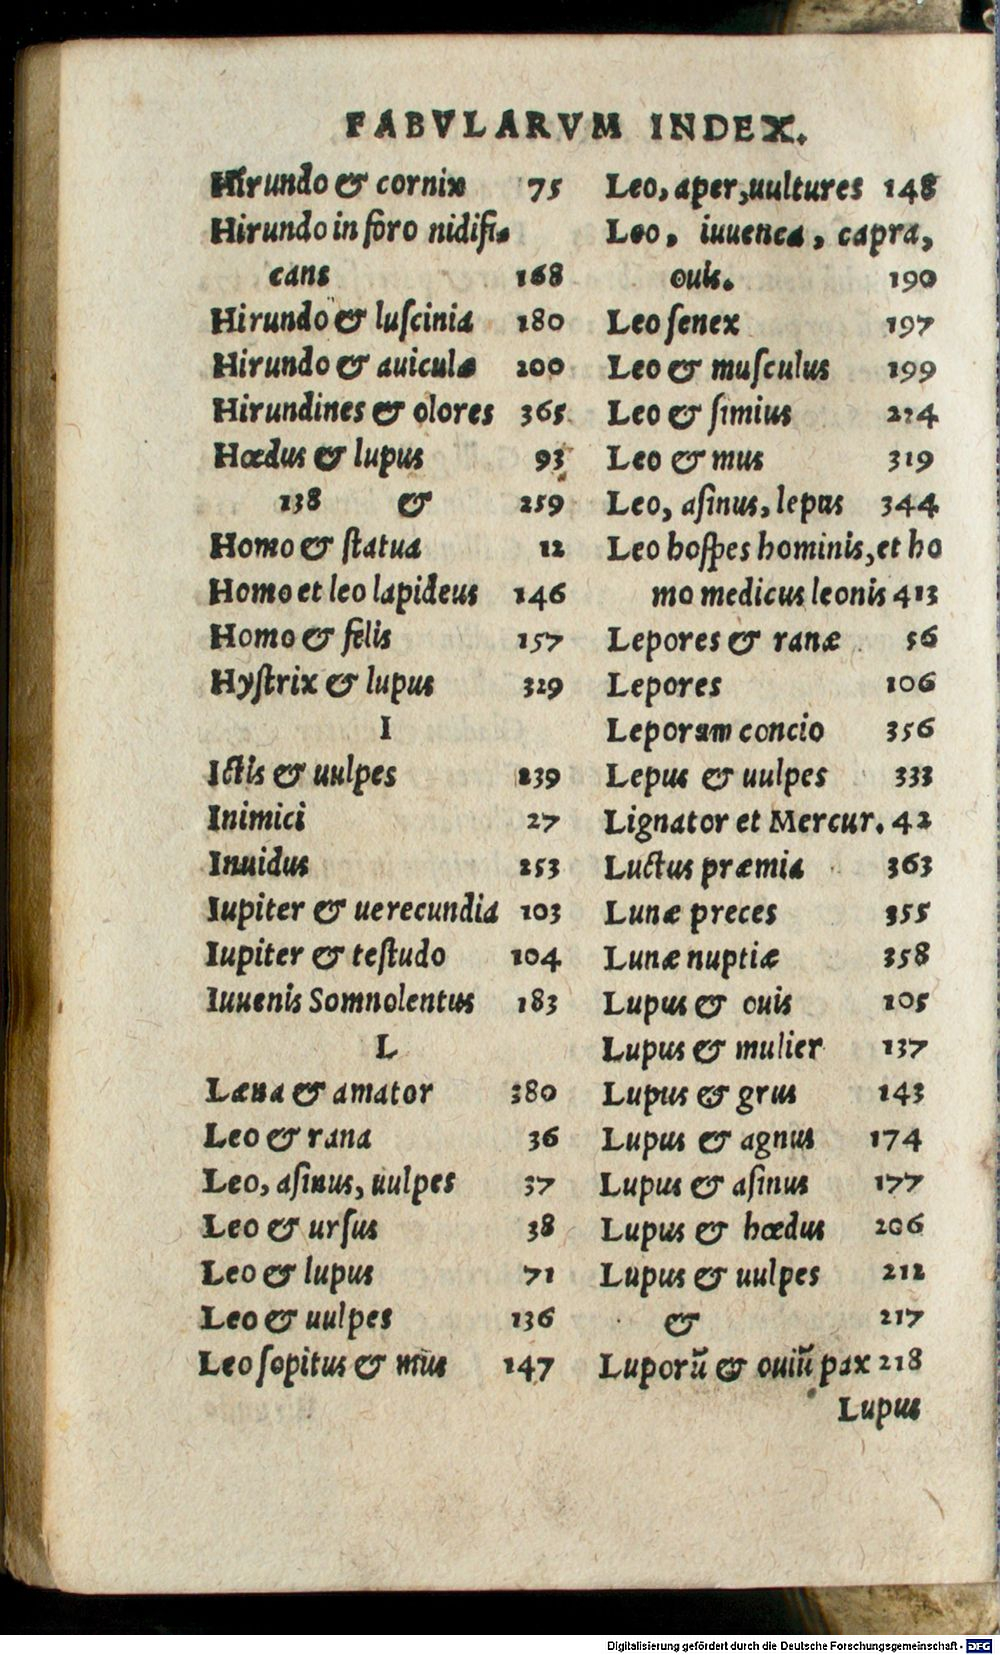 FABVLARVM INDEX.
Hirundo & cornix 75
Hirundo in foro nidifi-
cans 168
Hirundo & luſcinia 180
Hirundo & auiculæ 200
Hirundines & olores 365
Hœdus & lupus 93
138 & 259
Homo & ſtatua 12
Homo et leo lapideus 146
Homo & felis 157
Hyſtrix & lupus 329
I
Ictis & uulpes 239
Inimici 27
Inuidus 253
Iupiter & uerecundia 103
Iupiter & teſtudo 104
Iuuenis Somnolentus 183
L
Læna & amator 380
Leo & rana 36
Leo, aſinus, uulpes 37
Leo & urſus 38
Leo & lupus 71
Leo & uulpes 136
Leo ſopitus & mus 147
Leo, aper, uultures 148
Leo, iuuenca, capra,
ouis. 190
Leo ſenex 197
Leo & muſculus 199
Leo & ſimius 224
Leo & mus 319
Leo, aſinus, lepus 344
Leo hoſpes hominis, et ho
mo medicus leonis 413
Lepores & ranæ 56
Lepores 106
Leporum concio 356
Lepus & uulpes 333
Lignator et Mercur. 42
Luctus præmia 363
Lunæ preces 355
Lunæ nuptiæ 358
Lupus & ouis 105
Lupus & mulier 137
Lupus & grus 143
Lupus & agnus 174
Lupus & aſinus 177
Lupus & hœdus 206
Lupus & uulpes 212
& 217
Luporũ & ouiũ pax 218
Lupus
Digitalisierung gefördert durch die Deutsche Forschungsgemeinschaft - DFG